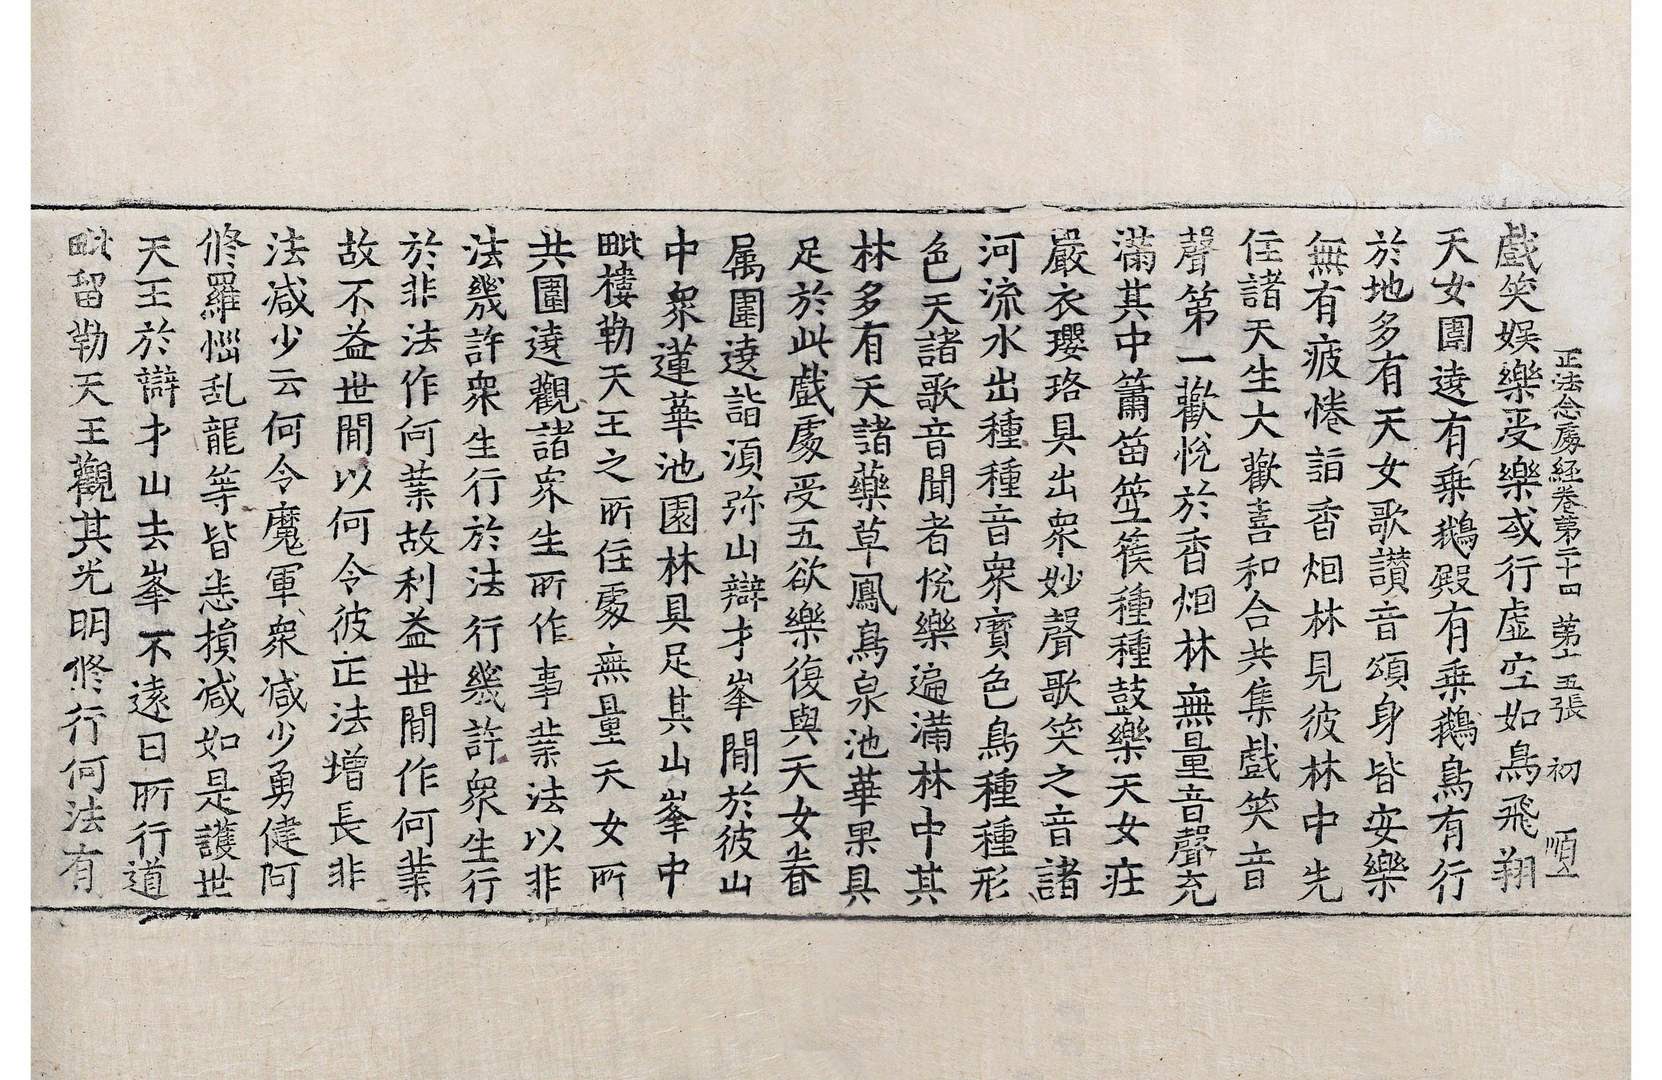 正法念處經卷第二十四 第十五張 初 順
戲笑娛樂受樂或行虛空如鳥飛翔
天女圍遶有乗鵝殿有乗鵝鳥有行
於地多有天女歌讃音頌身皆安樂
無有疲惓詣香烟林見彼林中先
住諸天生大歡喜和合共集戲笑音
聲第一歡悅於香烟林無量音聲充
滿其中簫笛箜篌種種鼓樂天女莊
嚴衣瓔珞具出衆妙聲歌笑之音諸
河流水出種種音衆寳色鳥種種形
色天諸歌音聞者悅樂遍滿林中其
林多有天諸藥草鳳鳥泉池華果具
足於此戲處受五欲樂復與天女眷
属圍遶詣湏弥山辯才峯間於彼山
中衆蓮華池園林具足其山峯中
毗樓勒天王之所住處無量天女所
共圍遶觀諸衆生所作事業法以非
法幾許衆生行於法行幾許衆生行
於非法作何業故利益世間作何業
故不益世間以何令彼正法增長非
法减少云何令魔軍衆减少勇健阿
修羅惱乱龍等皆悉損减如是護世
天王於辯才山去峯不遠日所行道
毗留勒天王觀其光明修行何法有